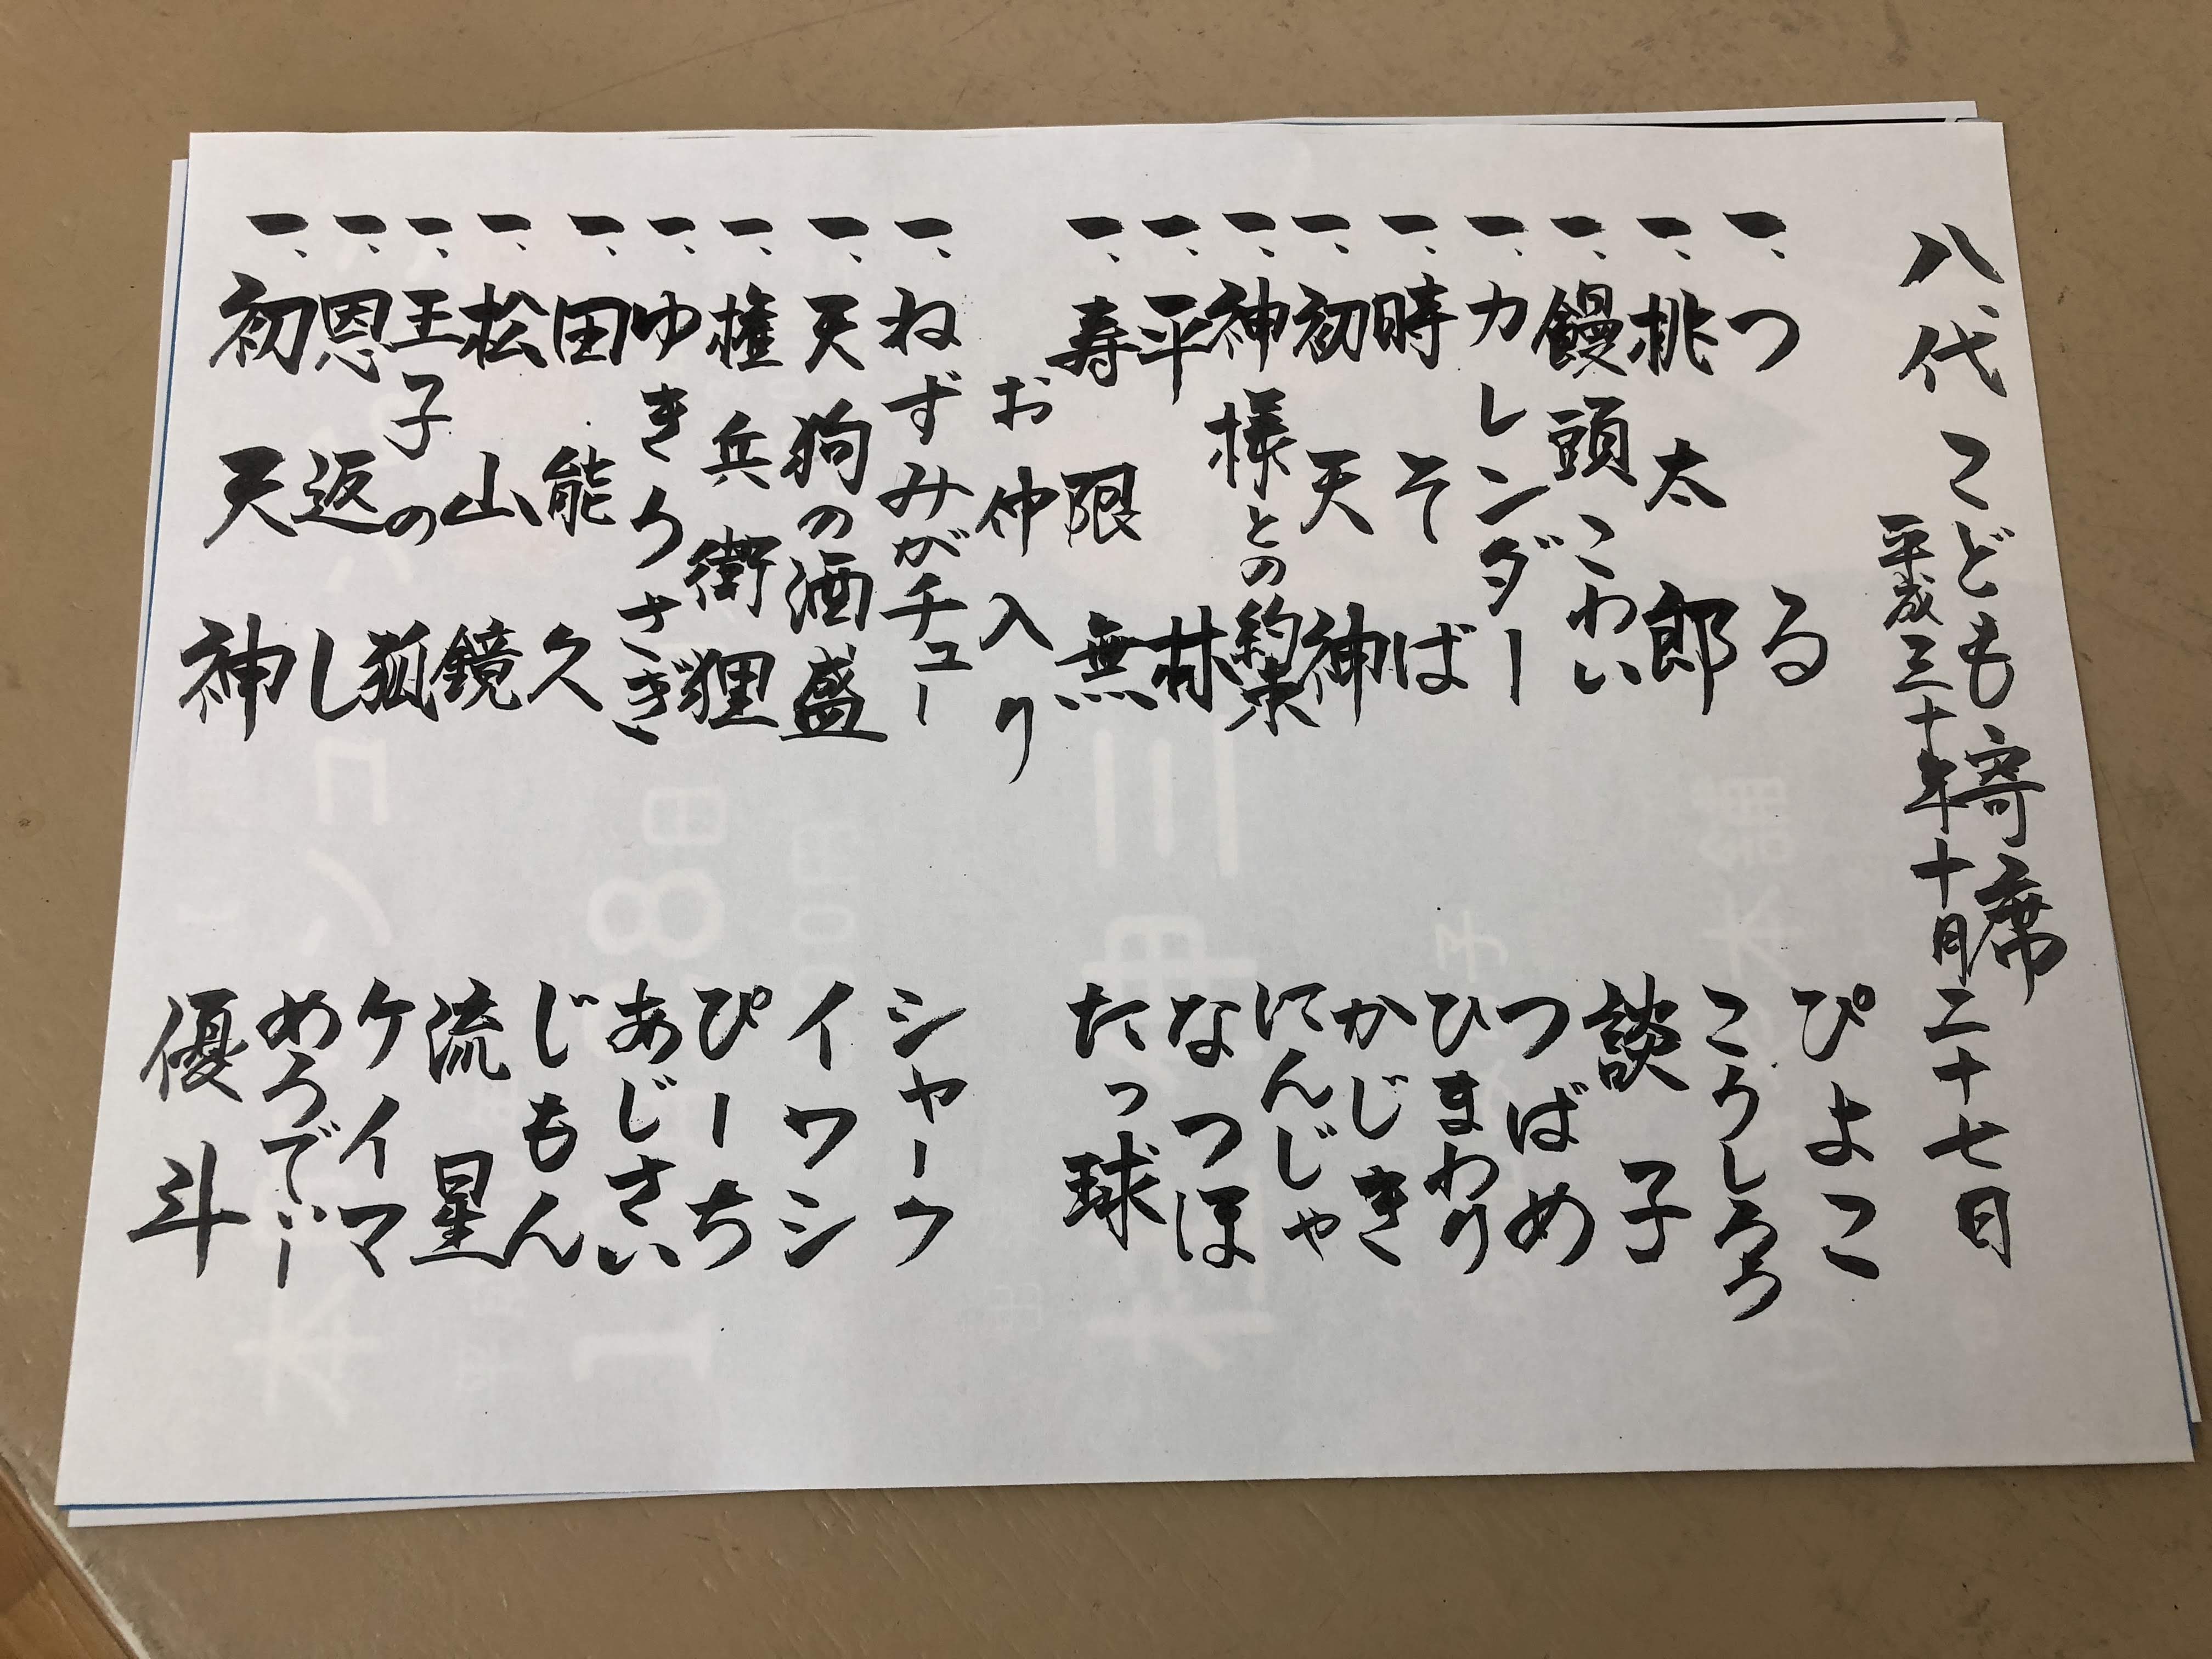 八代こども寄席
平成三十年十月二十七日
一、つる ぴよこ
一、桃太郎 こうしろう
一、饅頭こわい 談子
一、カレンダー つばめ
一、時そば ひまわり
一、初天神 かじき
一、神様との約束 にんじゃ
一、平林 なつほ
一、寿限無 たっ球
お仲入り
一、ねずみがチュー シャーク
一、天狗の酒盛 イワシ
一、権兵衛狸 ぴーち
一、ゆきうさぎ あじさい
一、田能久 じもん
一、松山鏡 流星
一、王子の狐 ケイマ
一、恩返し めろでぃー
一、初天神 優斗